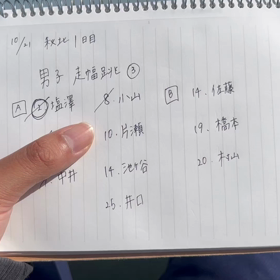 10/21 秋北 1日目
男子 走幅跳 ③
A 塩澤 8. 小山 B 14. 佐藤
10. 片瀬 19. 橋本
中井 14. 池谷 20. 村山
25. 井口